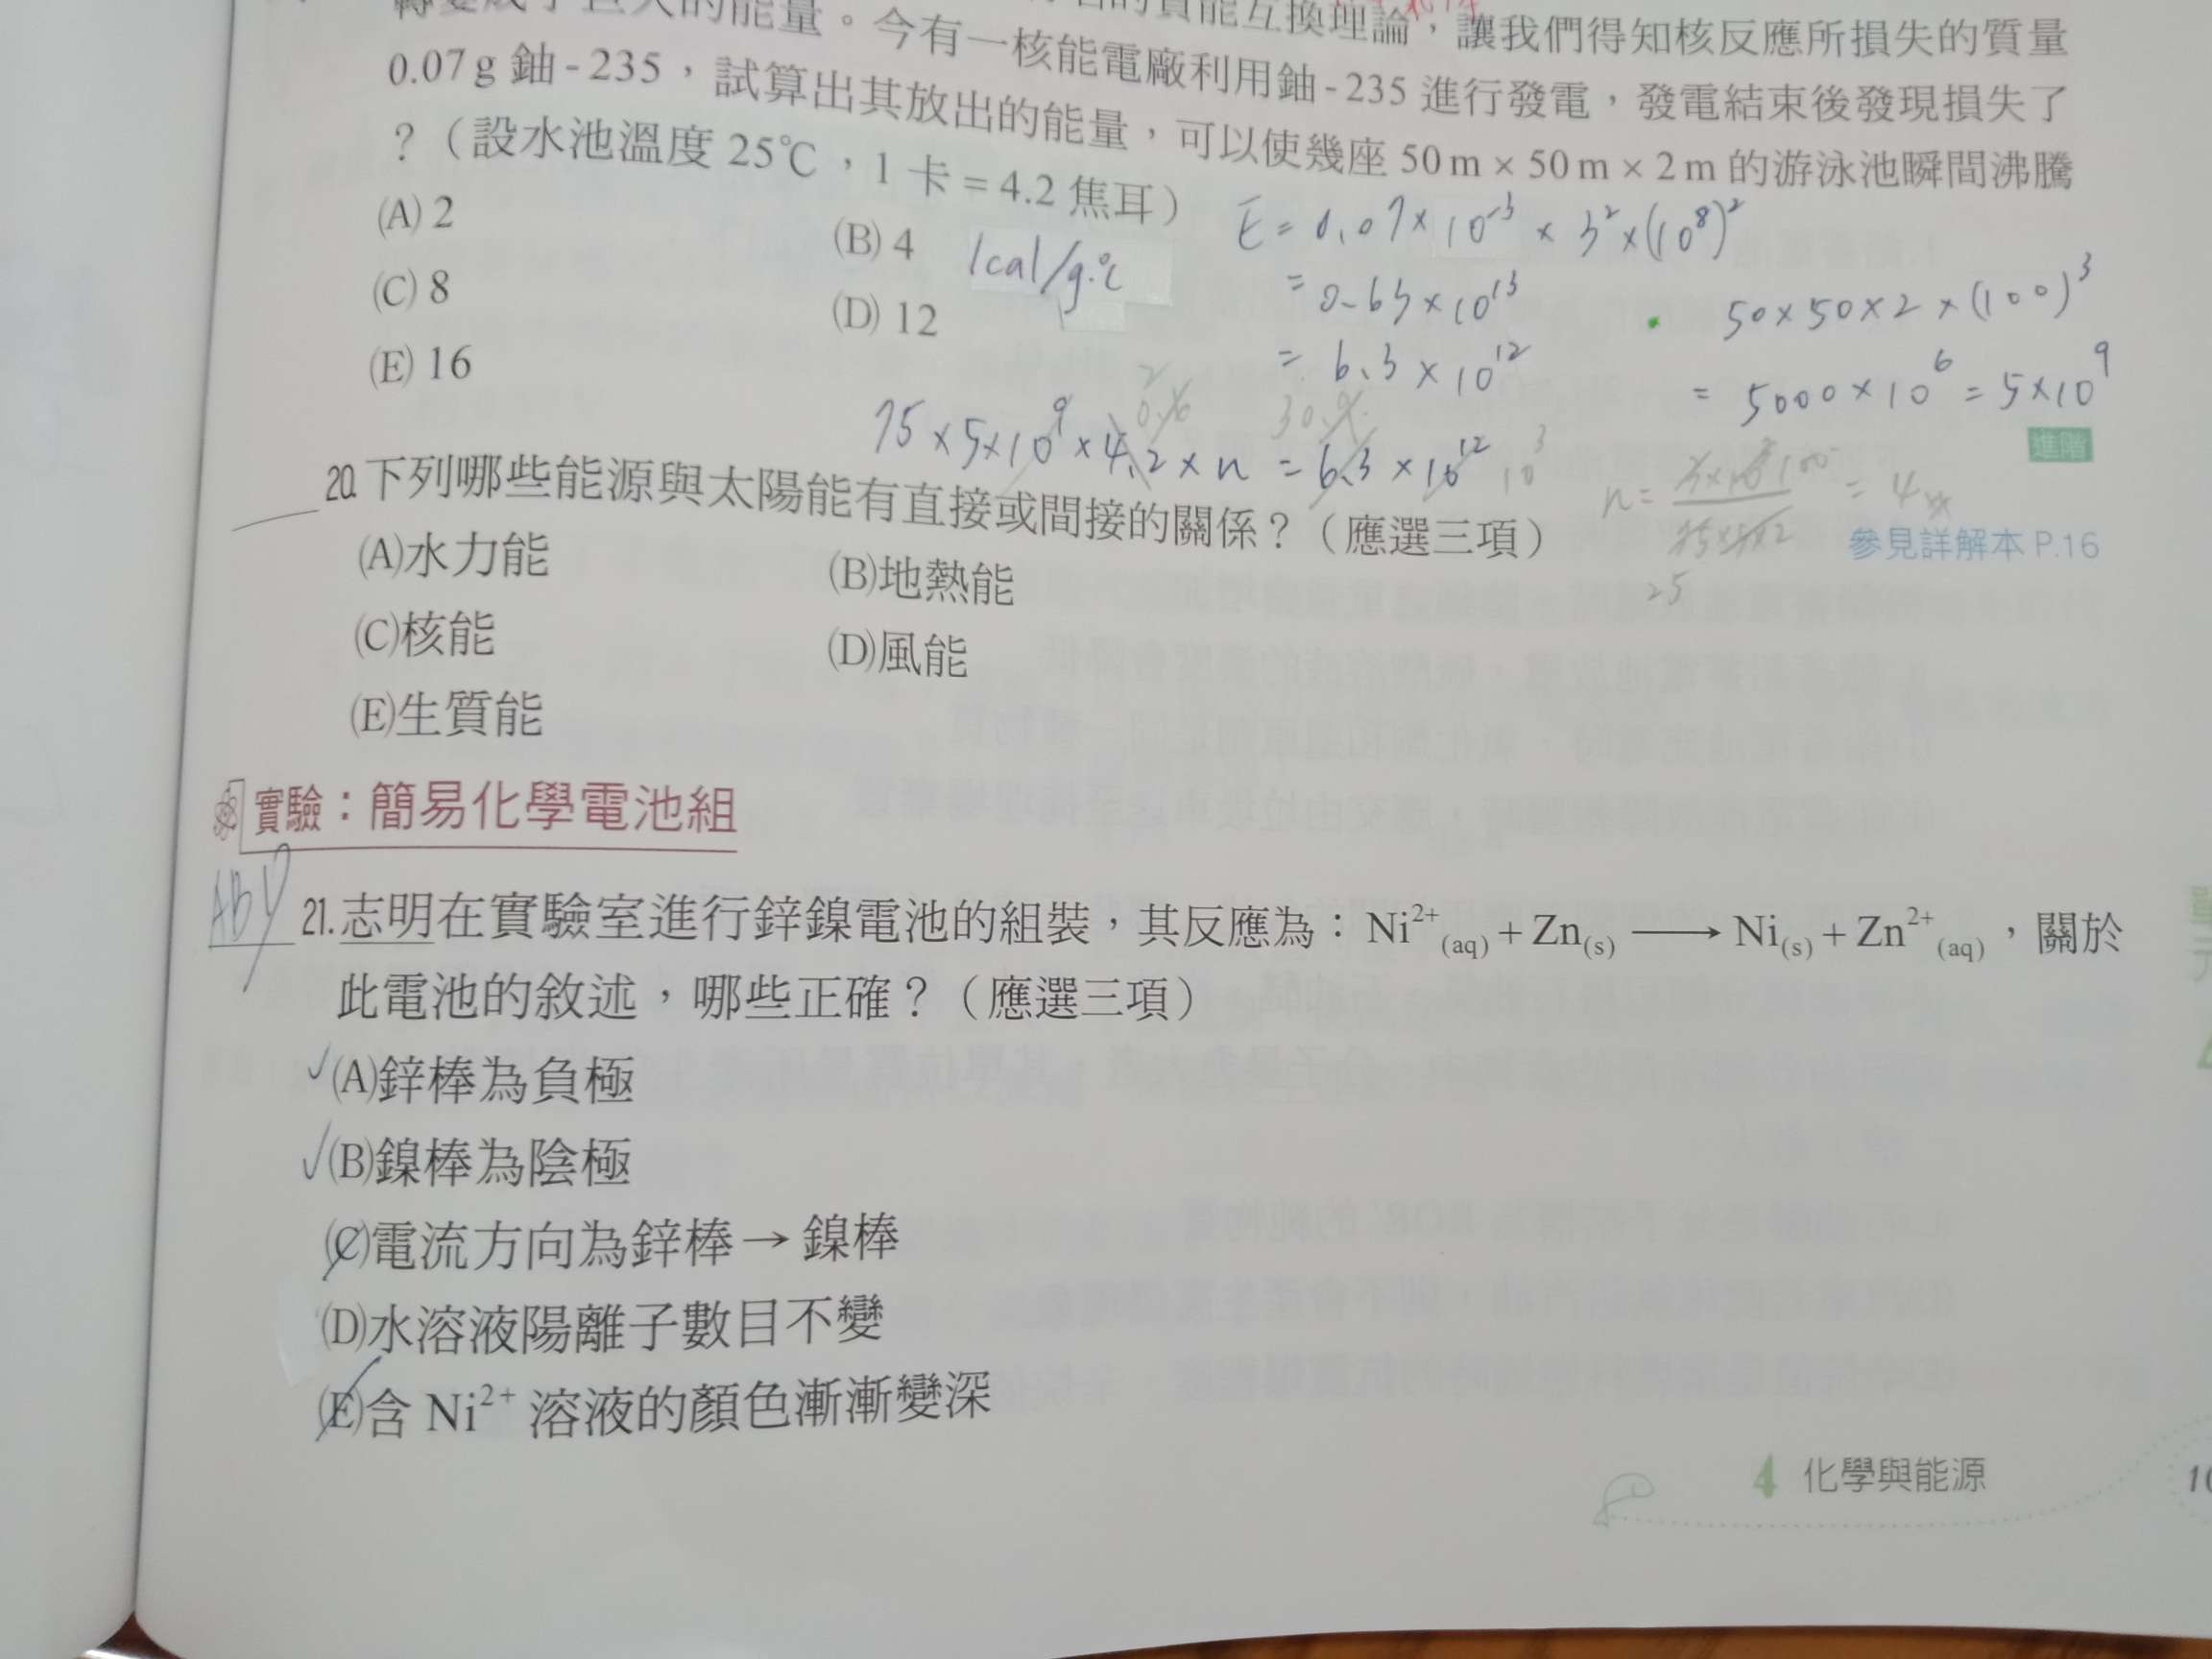 的能量。今有一核能電廠利用鈾-235進行發電，發電結束後發現損失了
的質能互換理論，讓我們得知核反應所損失的質量
0.07 g 鈾-235，試算出其放出的能量，可以使幾座 50 m × 50 m × 2 m 的游泳池瞬間沸騰
？（設水池溫度 25℃，1 卡 = 4.2 焦耳）
(A) 2
(B) 4
(C) 8
(D) 12
(E) 16
1cal/g·℃
E = 0.07 × 10⁻³ × 3² × (10⁸)²
= 0.63 × 10¹³
= 6.3 × 10¹²
50 × 50 × 2 × (100)³
= 5000 × 10⁶ = 5 × 10⁹
75 × 5 × 10⁹ × 4.2 × n = 6.3 × 10¹²
進階
20.下列哪些能源與太陽能有直接或間接的關係？（應選三項）
參見詳解本 P.16
(A)水力能
(B)地熱能
(C)核能
(D)風能
(E)生質能
實驗：簡易化學電池組
21.志明在實驗室進行鋅鎳電池的組裝，其反應為：Ni²⁺(aq) + Zn(s) ⟶ Ni(s) + Zn²⁺(aq)，關於
此電池的敘述，哪些正確？（應選三項）
(A)鋅棒為負極
(B)鎳棒為陰極
(C)電流方向為鋅棒→鎳棒
(D)水溶液陽離子數目不變
(E)含 Ni²⁺ 溶液的顏色漸漸變深
4 化學與能源